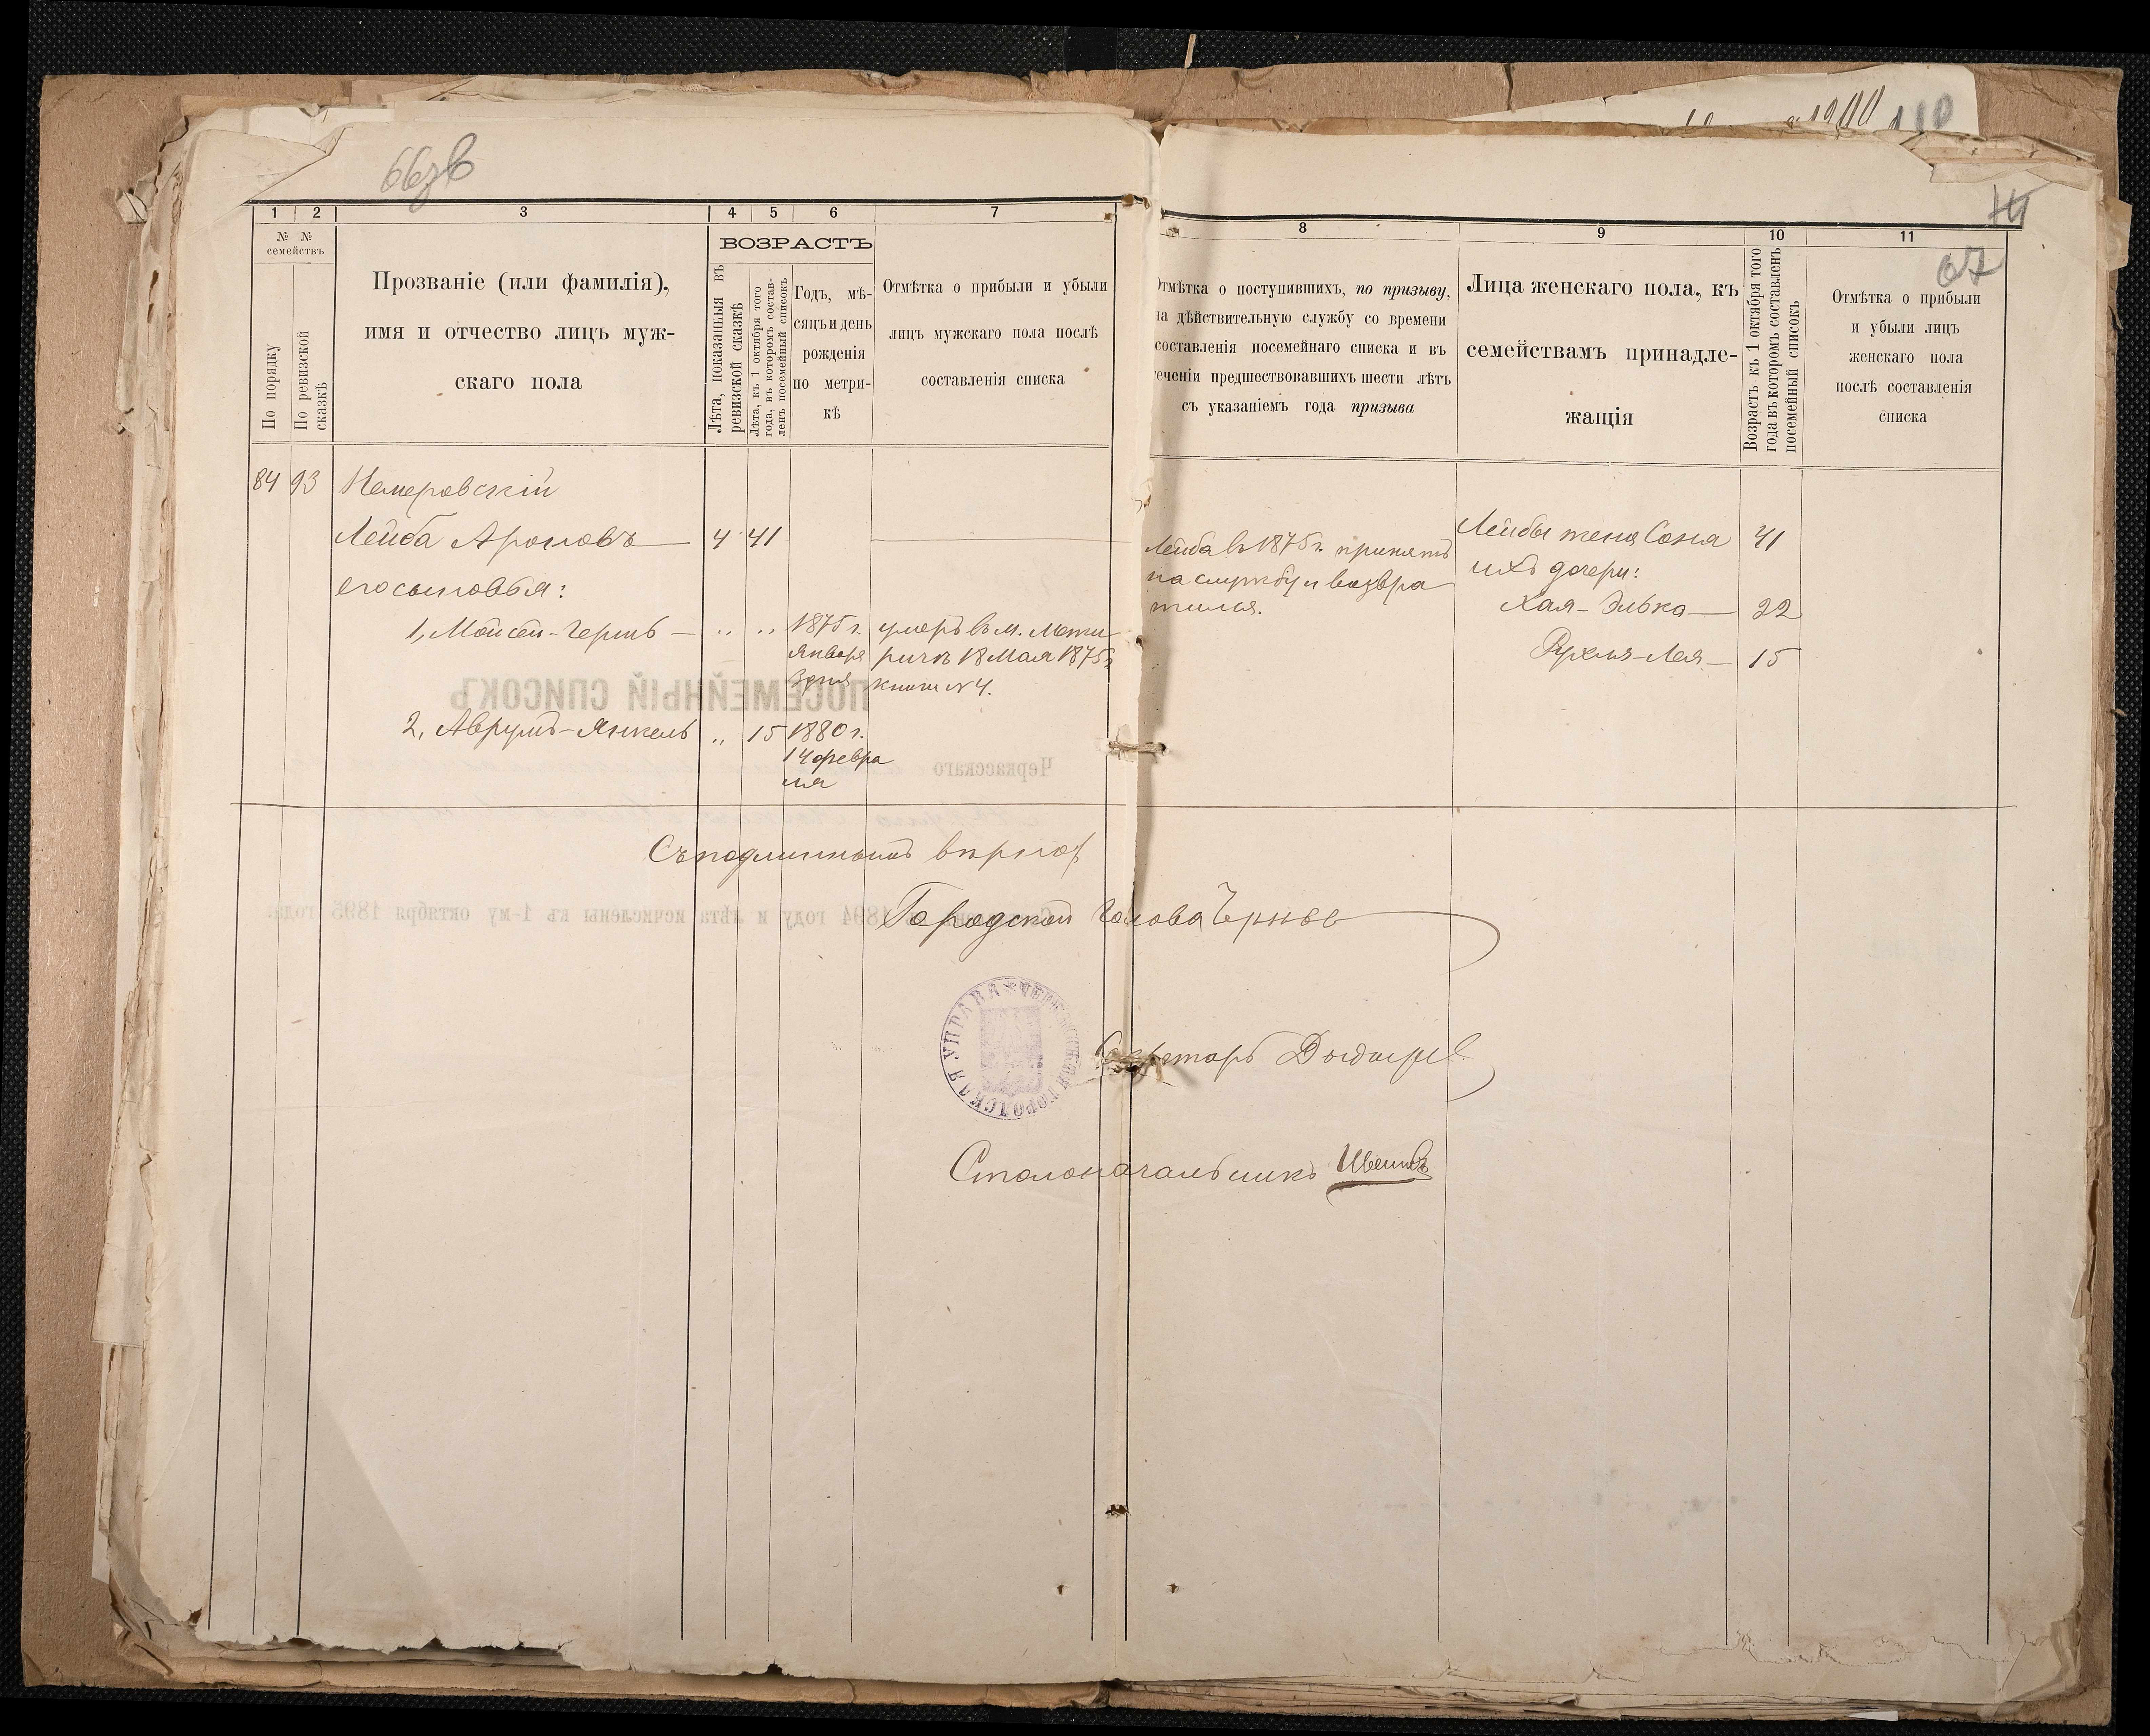 66зв
67
1 2 3 4 5 6 7
№ № семействъ
По порядку
По ревизской сказкѣ
Прозваніе (или фамилія),
имя и отчество лицъ муж-
скаго пола
ВОЗРАСТЪ
Лѣта, показанныя въ
ревизской сказкѣ
Лѣта, къ 1 октября того
года, въ которомъ состав-
ленъ посемейный списокъ
Годъ, мѣ-
сяцъ и день
рожденія
по метри-
кѣ
Отмѣтка о прибыли и убыли
лицъ мужскаго пола послѣ
составленія списка
8 9 10 11
Отмѣтка о поступившихъ, по призыву,
на дѣйствительную службу со времени
составленія посемейнаго списка и въ
теченіи предшествовавшихъ шести лѣтъ
съ указаніемъ года призыва
Лица женскаго пола, къ
семействамъ принадле-
жащія
Возрастъ къ 1 октября того
года въ которомъ составленъ
посемейный списокъ
Отмѣтка о прибыли
и убыли лицъ
женскаго пола
послѣ составленія
списка
84 93 Немеровскій
Лейба Ароновъ 4 41
его сыновья:
1, Мойсей-Гершъ „ „ 1875 г.
января
3 дня
умеръ въ м. Межи
ричѣ 18 Мая 1875 г
книги № 4.
2, Аврумъ-Янкель „ 15 1880 г.
14 февра
ля
Лейба въ 1875 г. принятъ
на службу и возвра
тился.
Лейбы жена Соня 41
ихъ дочери:
Хая-Элька 22
Рухля-Лея 15
Съ подлиннымъ вѣрно:
Городской Голова
Секретарь
Столоначальникъ
ЧЕРКАССКАЯ ГОРОДСКАЯ УПРАВА
ПОСЕМЕЙНЫЙ СПИСОКЪ
Черкасскаго
1894 году и лѣта исчислены къ 1-му октября 1895 года.